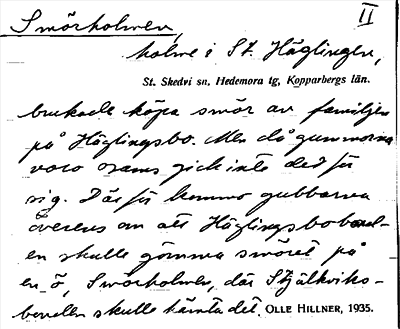 Smörholmen,
II
holme i St. Häglingen,
St. Skedvi sn, Hedemora tg, Kopparbergs län.
brukade köpa smör av familjen
på Häglingsbo. Men då gummorna
voro osams gick inte det för
sig. Därför kommo gubbarna
överens om att Häglingsbobond-
en skulle gömma smöret på
en ö, Smörholmen, där Stjälkviks-
bonden skulle hämta det. OLLE HILLNER, 1935.